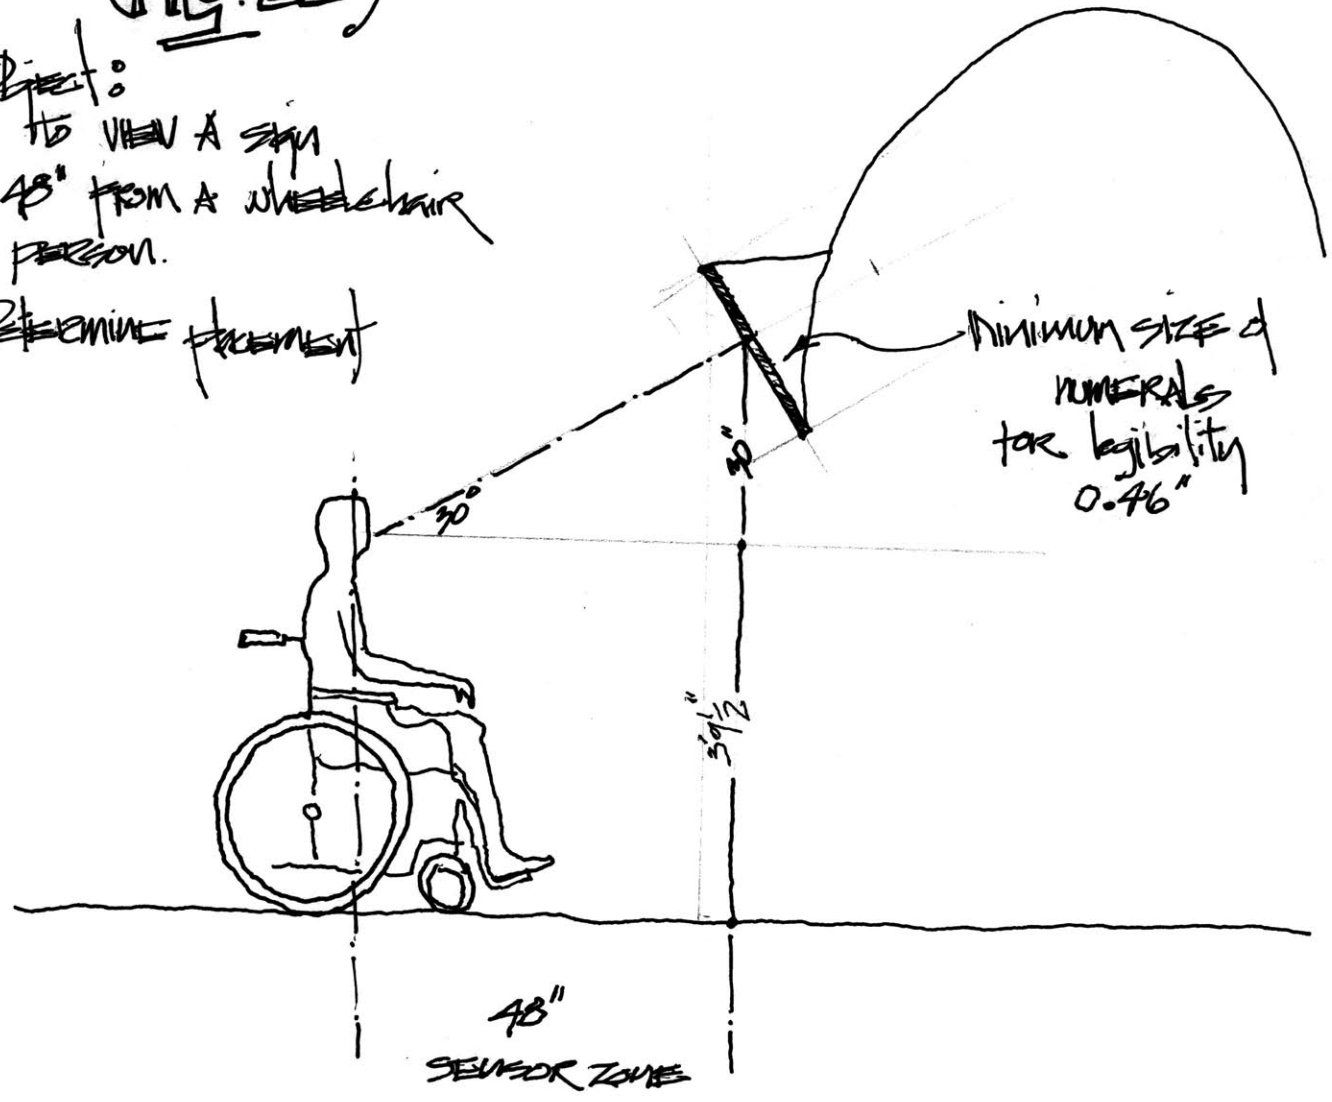 Object:
to view A sign
48" from A wheelchair
person.
Determine placement
Minimum size of
numerals
for legibility
0.46"
30"
30°
39½"
48"
Sensor Zone